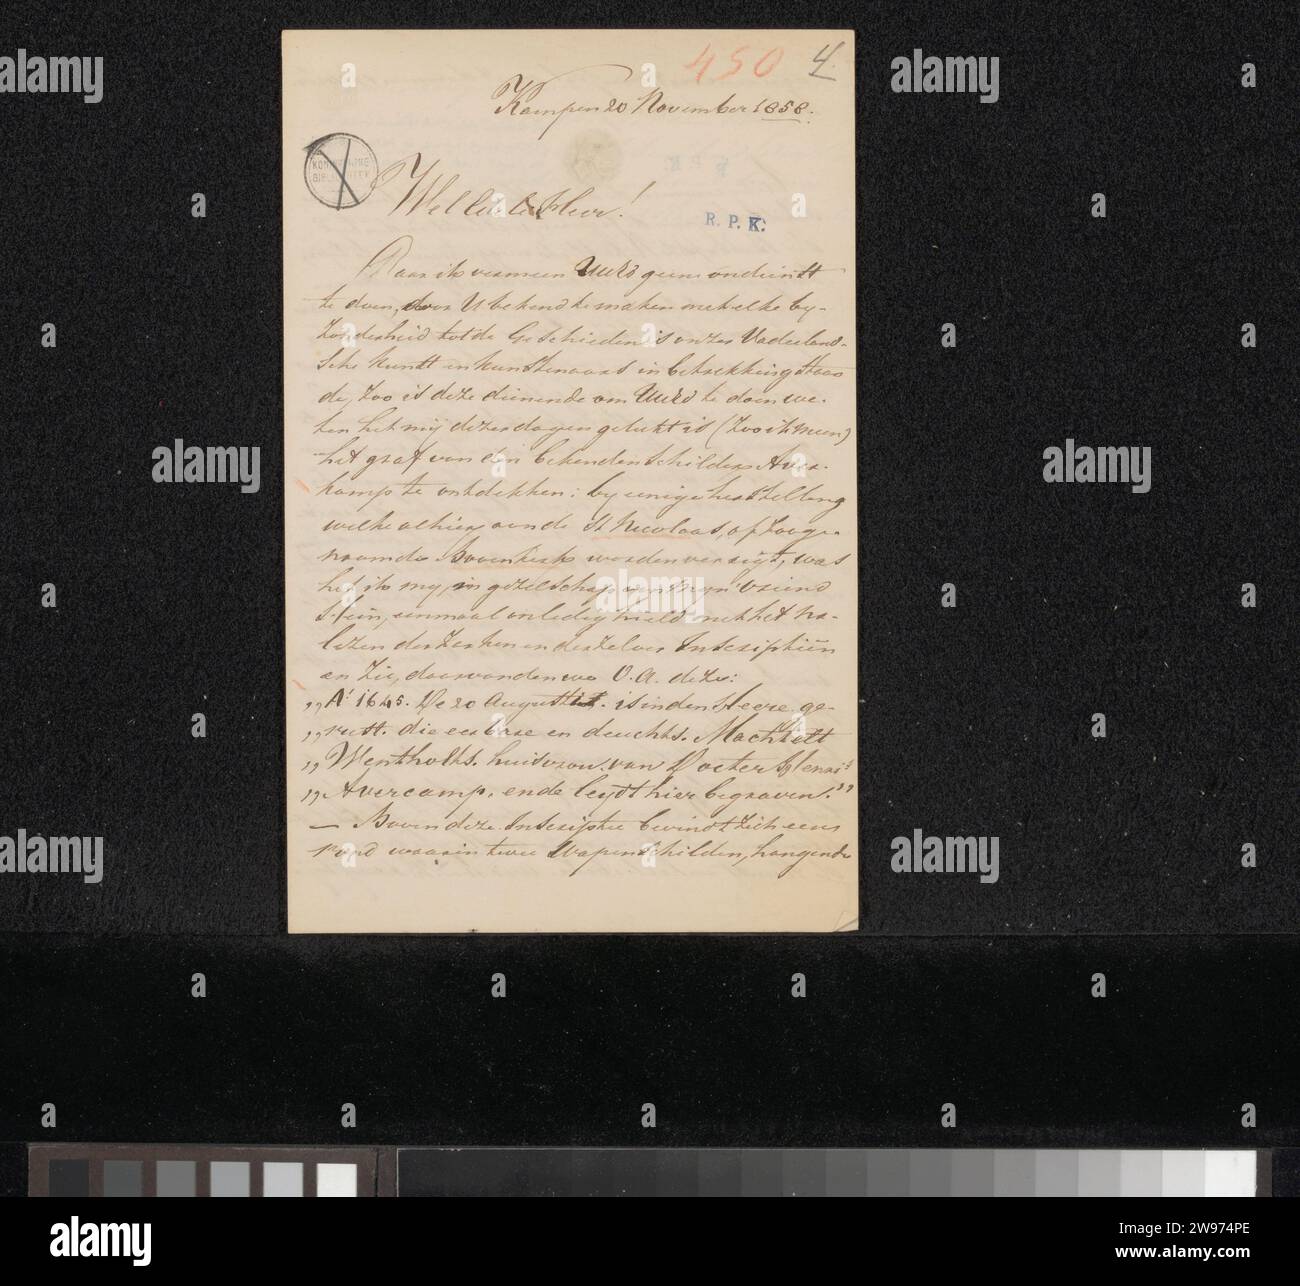 450 4
Kampen 20 November 1858.
KONINKLIJKE
BIBLIOTHEEK
Wel Edele Heer!
R. P. K.
Daar ik vermeen UwEd geene ondienst
te doen, door U bekend te maken met elke by-
zonderheid tot de Geschiedenis onzer Vaderland-
sche kunst en kunstenaars in betrekking staan
de, zoo is deze dienende om UwEd te doen we-
ten het mij dezer dagen gelukt is (zoo ik meen)
het graf van den bekenden schilder Aver-
kamp te ontdekken: by eenige herstelling
welke alhier aan de St Nicolaas, of zooge-
naamde Bovenkerk worden verrigt, was
het ik my, in gezelschap myn vriend
eenmaal onledig hield met het na-
lezen der zerken en derzelver Inscriptiën
en zie, daar vonden we O.A. deze:
„ A: 1645. De 20 Augusti. is in den Heere ge-
„ rust. die eerbare en deuchts. Machtelt
„ Wentholts. huisvrou. van Docter
„ Avercamp. ende leydt hier begraven.”
— Boven deze Inscriptie bevindt zich een
rond waarin twee Wapenschilden, hangende
alamy
Image ID: 2W974PE
www.alamy.com